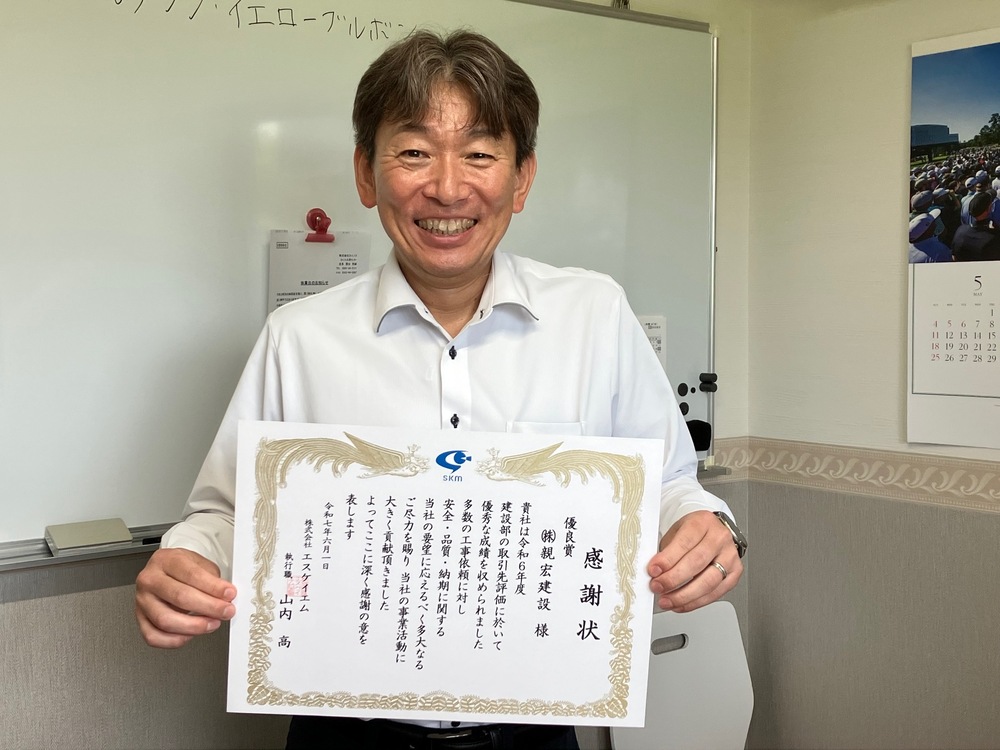 イエローブルボン
SKM
感謝状
優良賞
㈱親宏建設 様
貴社は令和6年度
建設部の取引先評価に於いて
優秀な成績を収められました
多数の工事依頼に対し
安全・品質・納期に関する
当社の要望に応えるべく多大なる
ご尽力を賜り 当社の事業活動に
大きく貢献頂きました
よってここに深く感謝の意を
表します
令和七年六月一日
株式会社 エスケイエム
執行職 山内 高
5
MAY
1
4 5 6 7 8
11 12 13 14 15
18 19 20 21 22
25 26 27 28 29